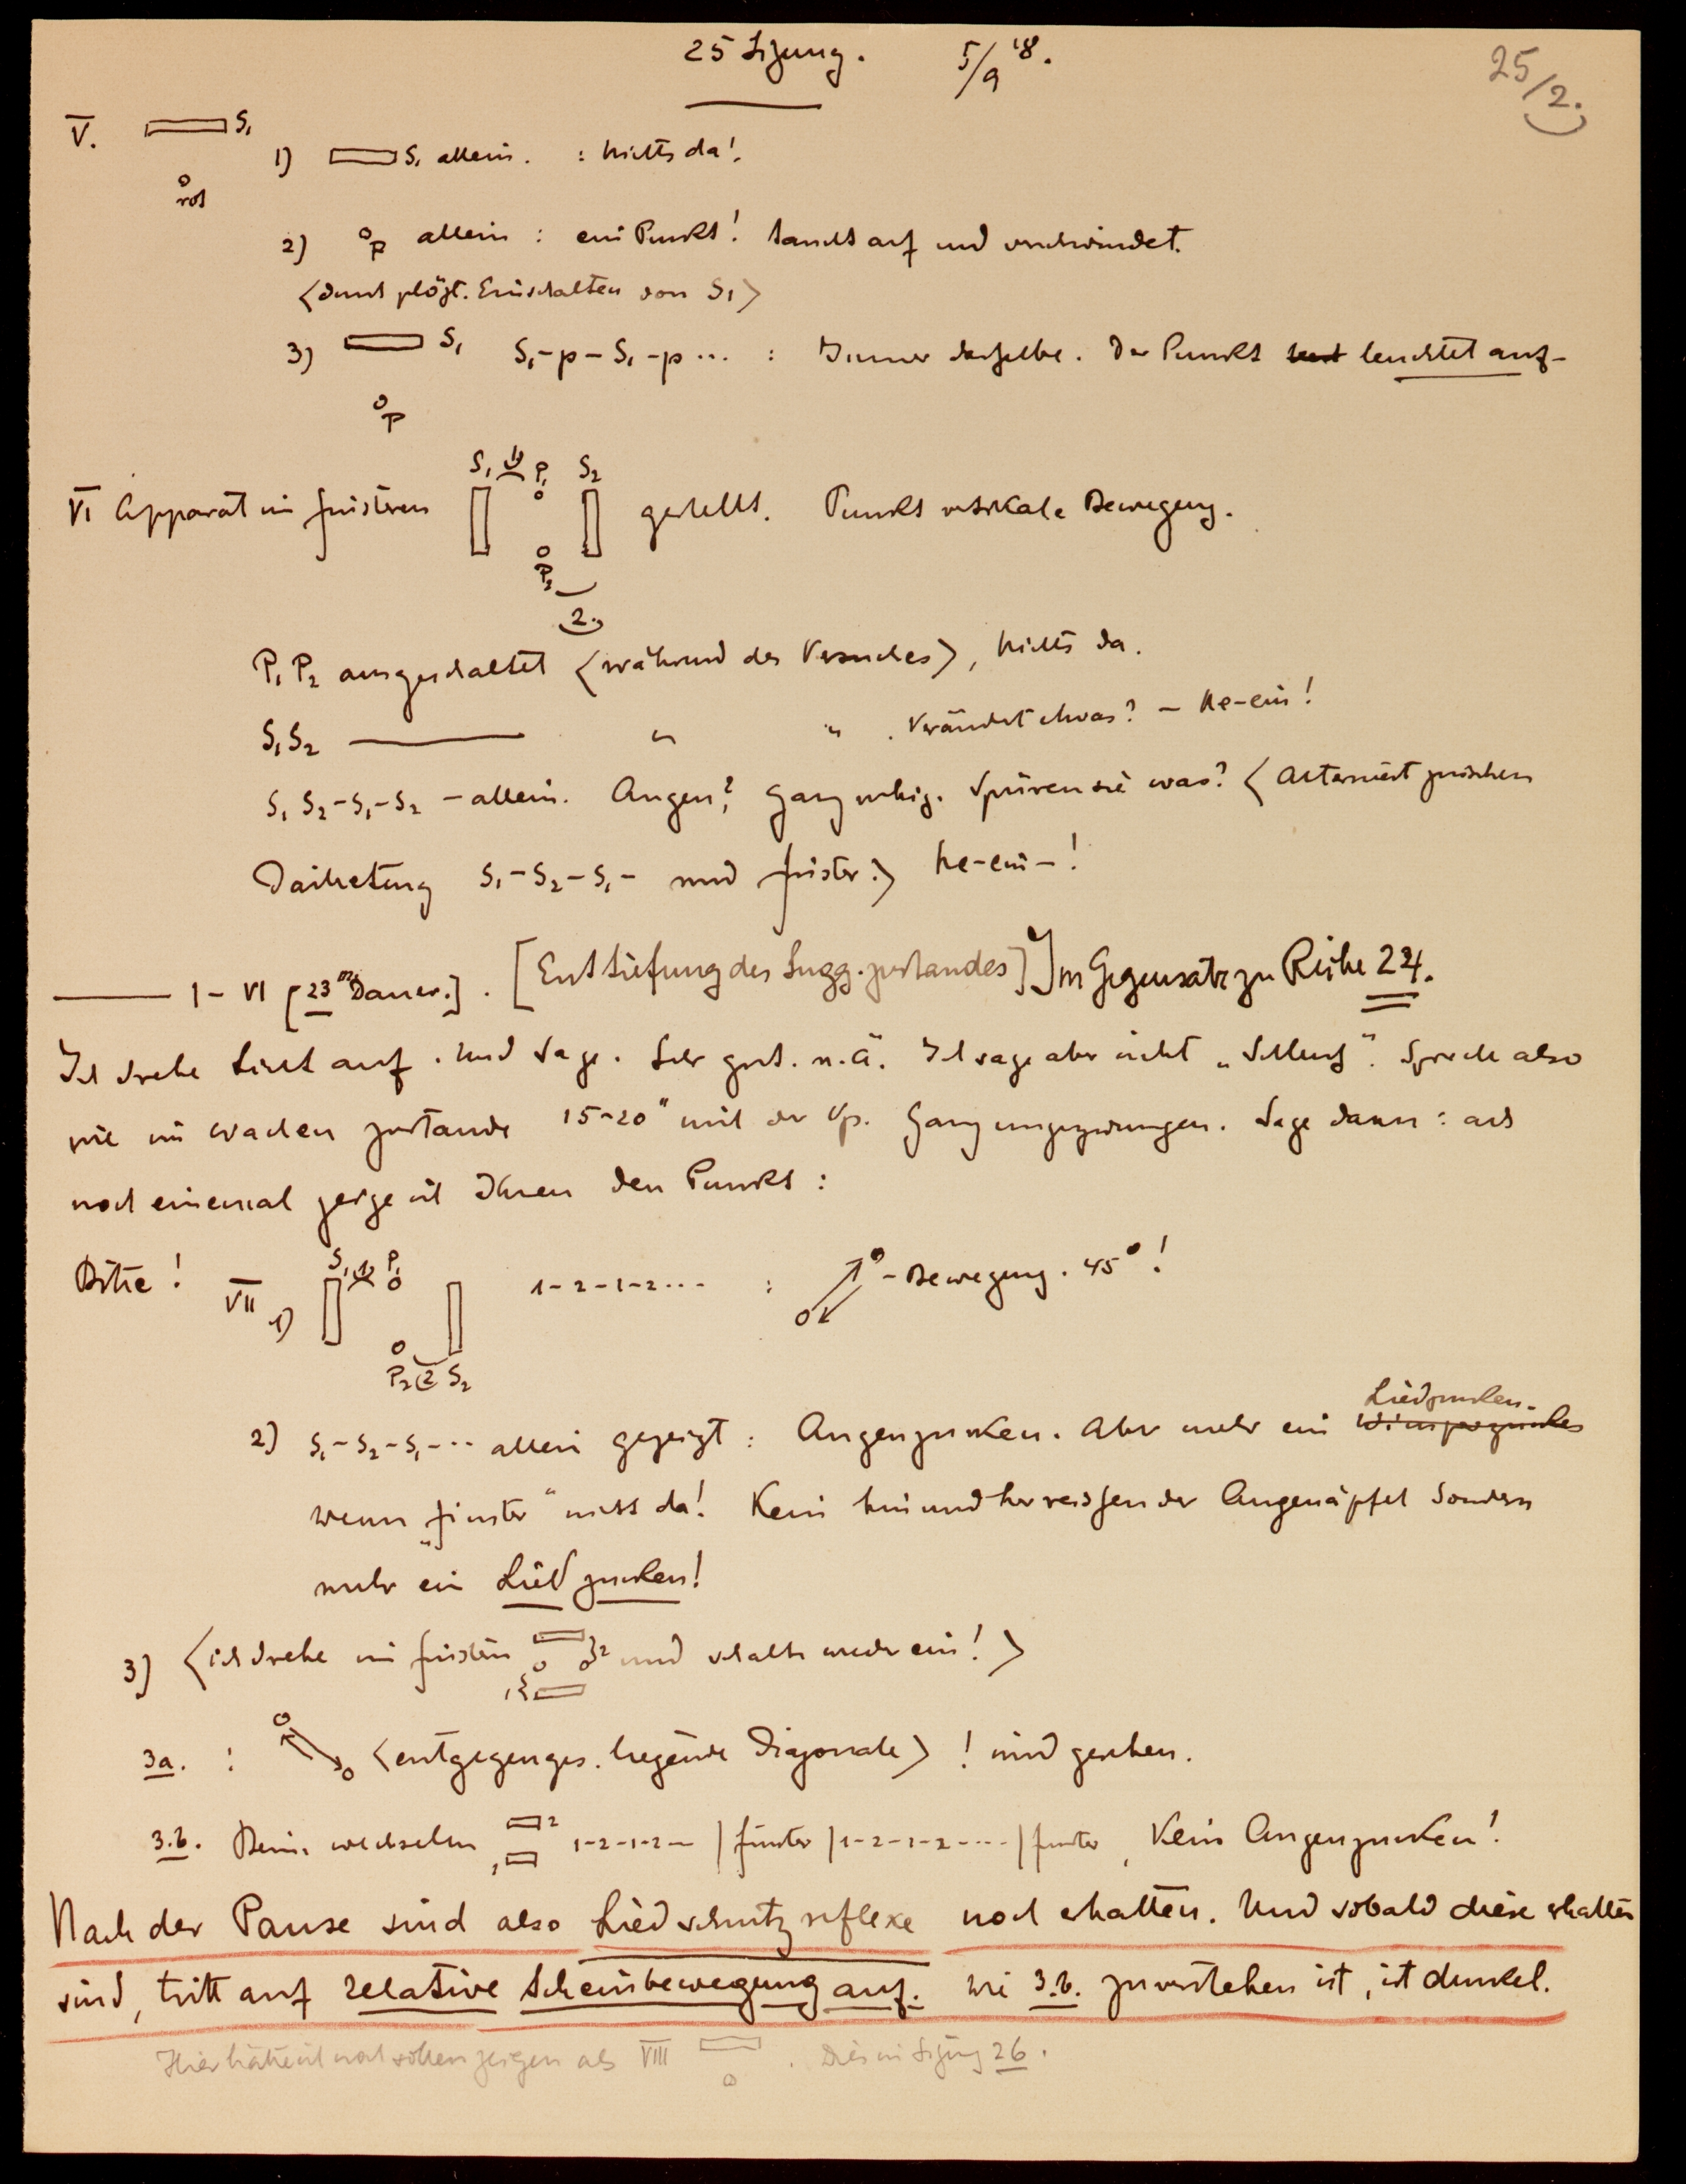 25 Sitzung. 5/9 '18.
25/2.
V. S₁
rot
1) S₁ allein. : Nichts da!
2) p allein : ein Punkt! taucht auf und verschwindet.
<durch plötzl. Einschalten von S₁>
3) S₁ S₁-p-S₁-p... : Immer dasselbe. Der Punkt leuchtet auf-
p
S₁ 1) P₁ S₂
VI Apparat im finsteren gestellt. Punkt vertikale Bewegung.
P₂
2.
P₁ P₂ ausgeschaltet <während des Versuches>, nichts da.
S₁ S₂ ——— " " . Verändert etwas? - Ne-ein!
S₁ S₂-S₁-S₂ - allein. Augen? ganz ruhig. Spüren sie was? <Alterniert zwischen
Darbietung S₁-S₂-S₁- und finster.> Ne-ein-!
——— I-VI [23ᵐ Dauer.]. [Enttiefung des Sugg.zustandes] Im Gegensatz zu Reihe 24.
Ich drehe Licht auf. Und sage. Sehr gut. u.ä. Ich sage aber nicht „Schluß". Spreche also
wie im wachen zustande 15-20" mit der Vp. Ganz ungezwungen. Sage dann: ach
noch einemal zeige ich Ihnen den Punkt :
Bitte! VII 1) S₁ 1) P₁ 1-2-1-2... : -Bewegung. 45°!
P₂ 2 S₂
Lidzucken.
2) S₁-S₂-S₁-... allein gezeigt : Augenzucken. Aber mehr ein Wimperzucken
wenn „finster" nichts da! Kein hin und her reissen der Augenäpfel sondern
mehr ein Lidzucken!
3) <ich drehe im finstern 2 und schalte wieder ein!>
1
3a. : <entgegenges. liegende Diagonale> ! wird gesehen.
3.b. Beim wechseln 2 1 1-2-1-2- | finster | 1-2-1-2-... | finster, Kein Augenzucken!
Nach der Pause sind also Liedschutzreflexe noch erhalten. Und sobald diese erhalten
sind, tritt auf relative Scheinbewegung auf. Wie 3.b. zu verstehen ist, ist dunkel.
Hier hätte ich noch sollen zeigen als VIII . Dies in Sitzung 26.